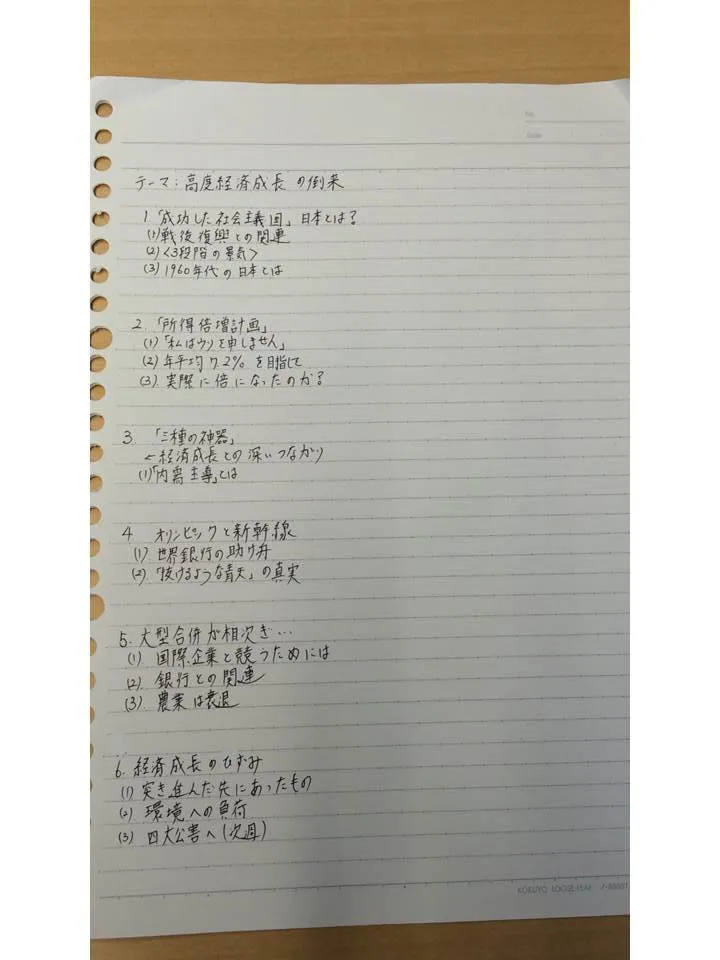 No.
Date
テーマ:高度経済成長の到来
1.「成功した社会主義国」日本とは?
(1)戦後復興との関連
(2)<3段階の景気>
(3)1960年代の日本とは
2.「所得倍増計画」
(1)「私はウソを申しません」
(2)年平均7.2%を目指して
(3)実際に倍になったのか?
3.「三種の神器」
←経済成長との深いつながり
(1)「内需主導」とは
4 オリンピックと新幹線
(1)世界銀行の助け舟
(2)「抜けるような青天」の真実
5.大型合併が相次ぎ…
(1)国際企業と競うためには
(2)銀行との関連
(3)農業は衰退
6.経済成長のひずみ
(1)突き進んだ先にあったもの
(2)環境への負荷
(3)四大公害へ(次週)
KOKUYO LOOSE-LEAF